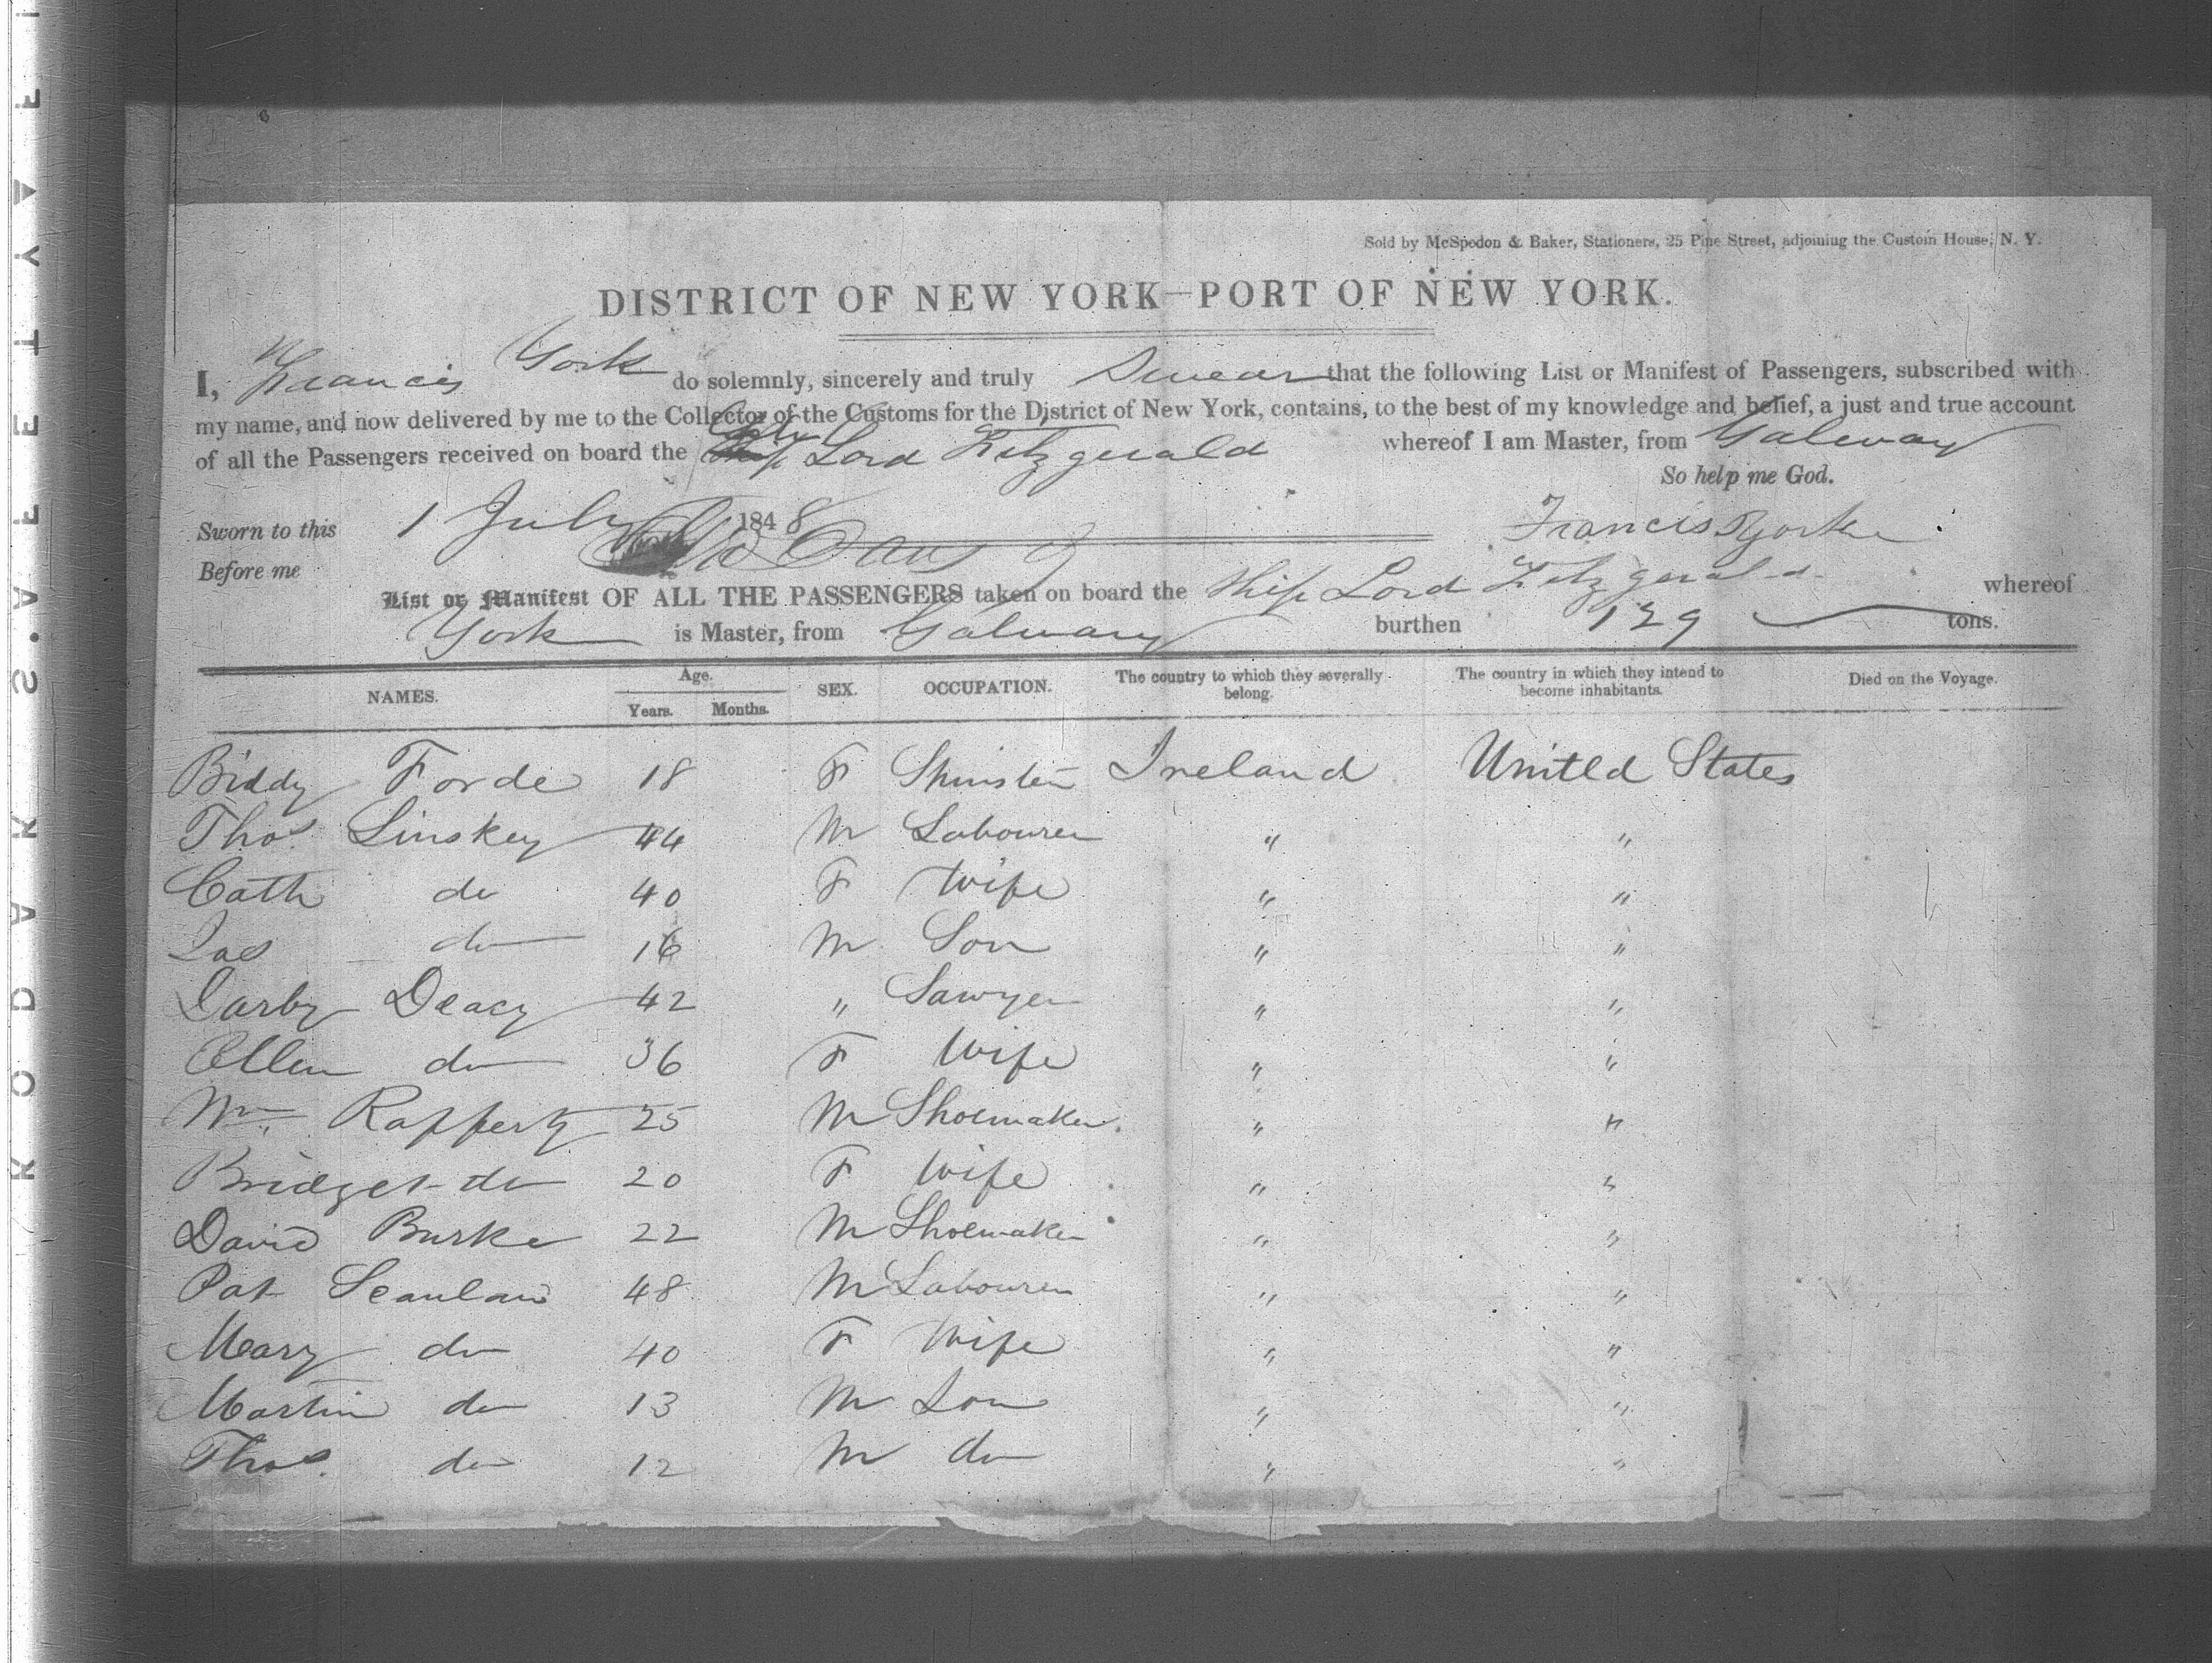 Sold by McSpedon & Baker, Stationers, 25 Pine Street, adjoining the Custom House, N. Y.
DISTRICT OF NEW YORK—PORT OF NEW YORK.
I, Francis York do solemnly, sincerely and truly Swear that the following List or Manifest of Passengers, subscribed with
my name, and now delivered by me to the Collector of the Customs for the District of New York, contains, to the best of my knowledge and belief, a just and true account
of all the Passengers received on board the Lord Fitzgerald whereof I am Master, from Galway
So help me God.
Sworn to this 1 July 1848 Francis Yorke
Before me
List or Manifest OF ALL THE PASSENGERS taken on board the Ship Lord Fitzgerald whereof
York is Master, from Galway burthen 129 tons.
NAMES. Age. Years. Months. SEX. OCCUPATION. The country to which they severally belong. The country in which they intend to become inhabitants. Died on the Voyage.
Biddy Forde 18 F Spinster Ireland United States
Thos. Linskey 44 M Labourer " "
Cath do 40 F Wife " "
Jas do 16 M Son " "
Darby Deacy 42 " Sawyer " "
Ellen do 36 F Wife " "
Wm. Rafferty 25 M Shoemaker. " "
Bridget do 20 F Wife " "
David Burke 22 M Shoemaker " "
Pat Scanlan 48 M Labourer " "
Mary do 40 F Wife " "
Martin do 13 M Son " "
Thos. do 12 M do " "